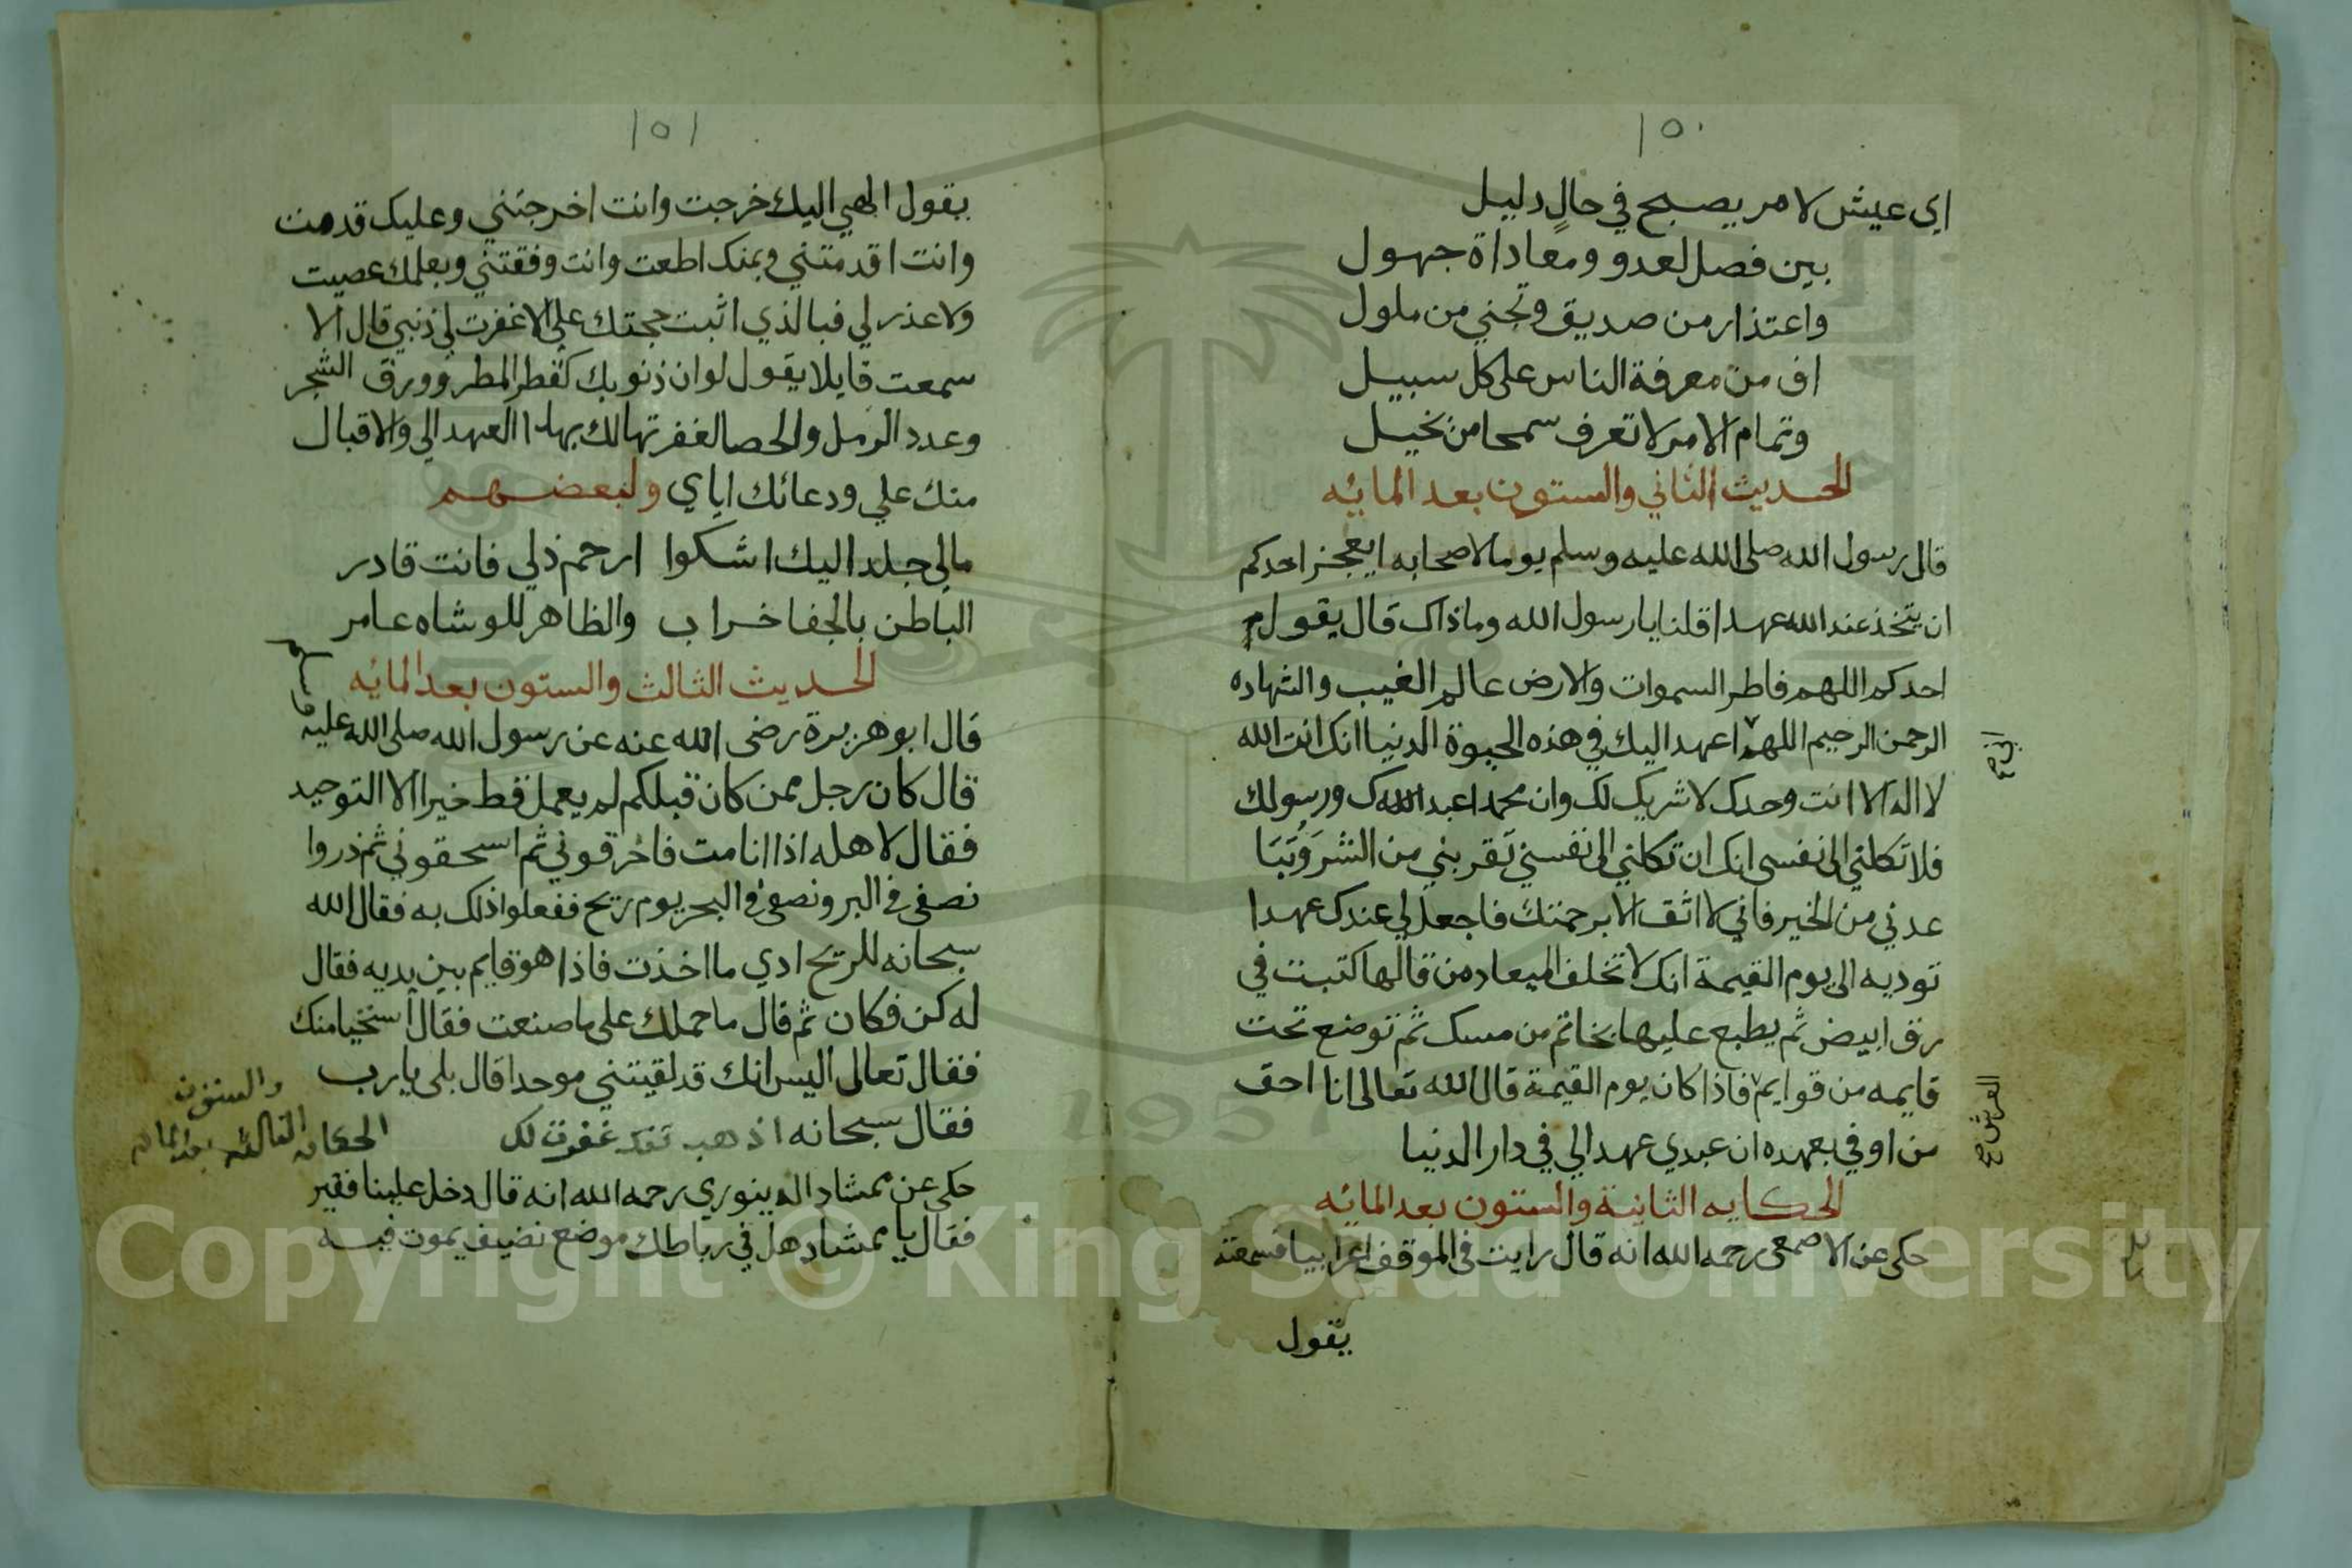 ١٥٠
اي عيش لامر يصبح في حال دليل
بين فصل لعدو ومعاداة جهول
واعتذار من صديق وتجني من ملول
اف من معرفة الناس على كل سبيل
وتمام الامر لا تعرف سمحا من بخيل
الحديث الثاني والستون بعد المائه
قال رسول الله صلى الله عليه وسلم يوما لاصحابه ايعجز احدكم
ان يتخذ عند الله عهدا قلنا يا رسول الله وما ذاك قال يقول
احدكم اللهم فاطر السموات والارض عالم الغيب والشهاده
الرحمن الرحيم اللهم اعهد اليك في هذه الحيوة الدنيا انك انت الله
اني صح
لا اله الا انت وحدك لا شريك لك وان محمدا عبدك ورسولك
فلا تكلني الى نفسي انك ان تكلني الى نفسي تقربني من الشر وتبا
عدني من الخير فاني لا اثق الا برحمتك فاجعل لي عندك عهدا
توديه الى يوم القيمة انك لا تخلف الميعاد من قالها كتبت في
رق ابيض ثم يطبع عليها بخاتم من مسك ثم توضع تحت
قايمه من قوايم فاذا كان يوم القيمة قال الله تعالى انا احق
العرش صح
من اوفي بعهده ان عبدي عهد الي في دار الدنيا
الحكايه الثانية والستون بعد المائه
حكى عن الاصمعى رحمه الله انه قال رايت فى الموقف اعرابيا فسمعته
يقول
١٥١
يقول الهي اليك خرجت وانت اخرجتني وعليك قدمت
وانت اقدمتني وبمنك اطعت وانت وفقتني وبعلمك عصيت
ولا عذر لي فبالذي اثبت حجتك علي الا غفرت لي ذنبي قال الا
سمعت قايلا يقول لو ان ذنوبك كقطر المطر وورق الشجر
وعدد الرمل والحصا لغفرتها لك بهذا العهد الي والاقبال
منك علي ودعائك اياي ولبعضهم
مالي جلد اليك اشكوا ارحم ذلي فانت قادر
الباطن بالجفا خراب والظاهر للوشاه عامر
الحديث الثالث والستون بعد المائه
قال ابو هريرة رضى الله عنه عن رسول الله صلى الله عليه
وسلم
قال كان رجل ممن كان قبلكم لم يعمل قط خيرا الا التوحيد
فقال لاهله اذا انا مت فاحرقوني ثم اسحقوني ثم ذروا
نصفى في البر ونصفي في البحر يوم ريح ففعلوا ذلك به فقال الله
سبحانه للريح ادي ما اخذت فاذا هو قايم بين يديه فقال
له كن فكان ثم قال ما حملك على ما صنعت فقال استحيا منك
فقال تعالى اليس انك قد لقيتني موحدا قال بلى يا رب
فقال سبحانه اذهب فقد غفرت لك الحكايه الثالثه
والستون
بعد المائه
حكي عن ممشاد الدينوري رحمه الله انه قال دخل علينا فقير
فقال يا ممشاد هل في رباطك موضع نضيف يموت فيه